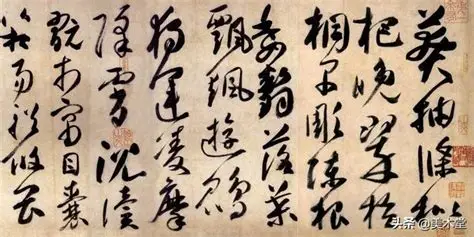 莽抽條枇
杷晚翠梧
桐早彫陳根
委翳落葉
飄颻遊鵾
獨運凌摩
絳霄耽讀
翫市寓目囊
箱易輶攸畏
头条 @美术堂